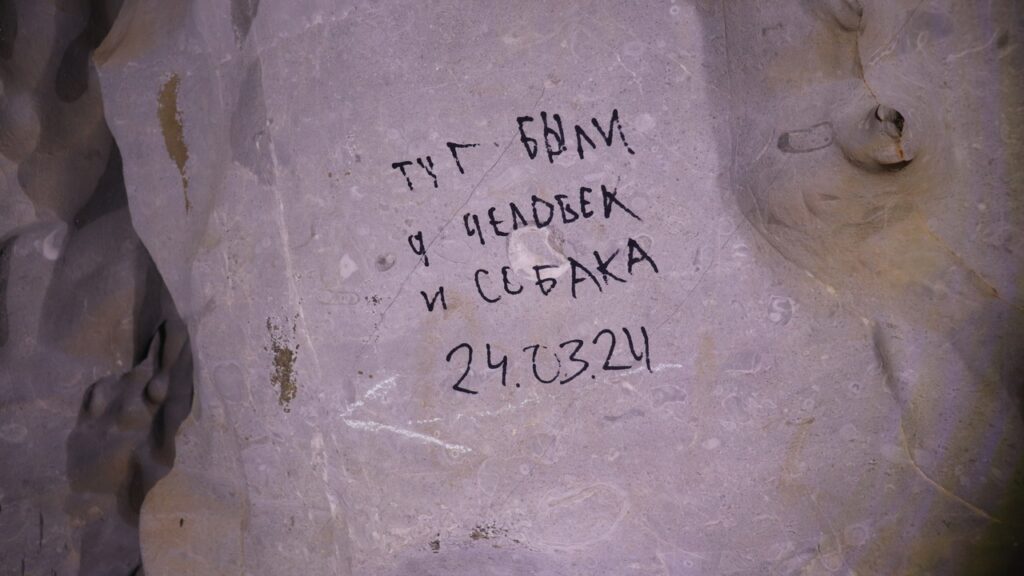 ТУТ БЫЛИ
4 ЧЕЛОВЕК
И СОБАКА
24.03.24